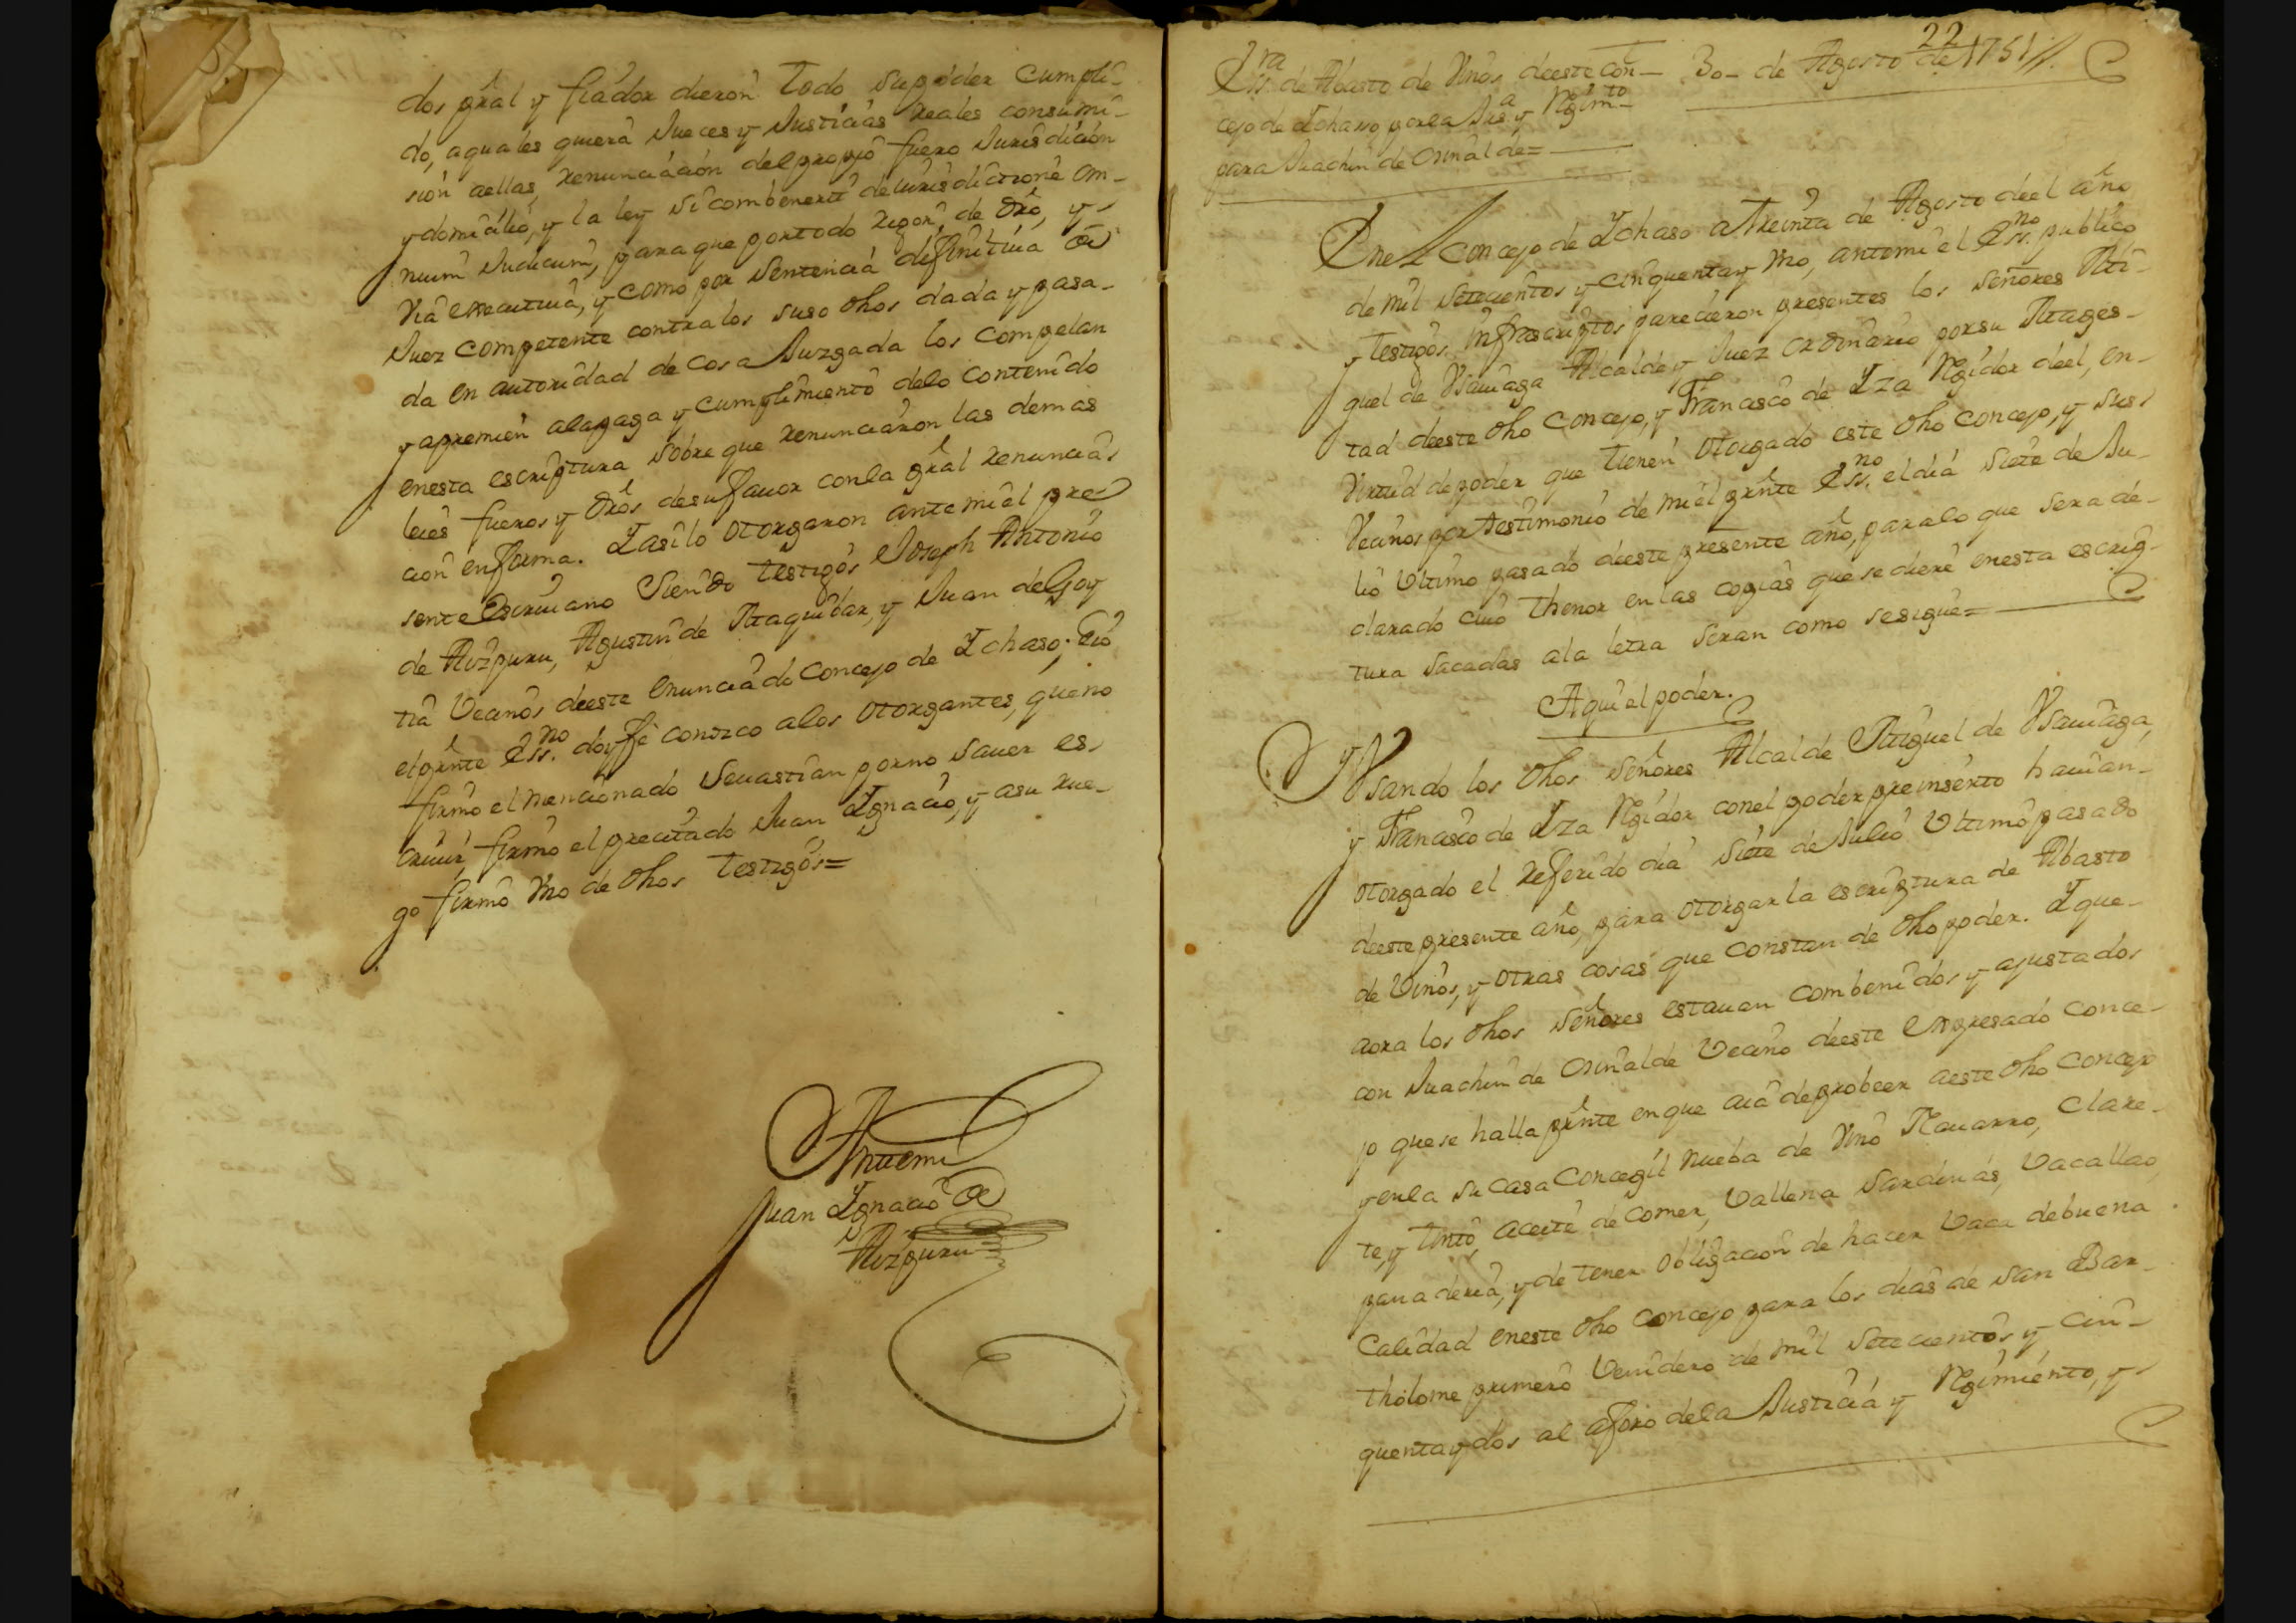 dos pral y fiador dieron todo su poder cumpli-
do, aquales quiera Jueces y Justicias reales con sumi-
sion aellas, renunciacion del propio fuero Jurisdicion
y domicilio, y la ley si combenerit de Jurisdictione om-
nium Judicum, para que por todo rigor de dro, y
via executiva, y como por sentencia difinitiva de
Juez competente contra los suso dhos dada y pasa-
da en autoridad de cosa Juzgada los compelan
y apremien ala paga y cumplimiento delo contenido
enesta escriptura sobre que renunciaron las demas
leies fueros y dros desu favor conla gral renuncia-
cion en forma. Y asi lo otorgaron ante mi el pre
sente Escrivano siendo testigos Joseph Antonio
de Aizpuru, Agustin de Ataguibar, y Juan de Goy
tia vecinos deeste enunciado Concejo de Ychaso; E io
el prnte Essno. doy fe conozco alos otorgantes, que no
firmo el mencionado Sevastian por no saver es-
crivir, firmo el precitado Juan Ygnacio, y asu rue-
go firmo vno de dhos testigos=
Antemi
Juan Ygnacio de
Aizpuru
22
Essra de Abasto de Vinos deeste con- 30- de Agosto de 1751//.
cejo de Ychaso por la Jusa. y Rgimto-
para Juachin de Oruñalde=
Enel Concejo de Ychaso a treinta de Agosto deel año
de mil setecientos y cinquenta y vno, ante mi el Essno. publico
y testigos infrascriptos parecieron presentes los señores Mi-
guel de Vsauiaga Alcalde y Juez ordinario por su Mages-
tad deeste dho Concejo, y Francisco de Yza Rgidor deel, en-
virtud de poder que tienen otorgado este dho Concejo, y sus
vecinos por testimonio de mi el prnte Essno. el dia siete de Ju-
lio vltimo pasado deeste presente año, para lo que sera de-
clarado cuio thenor en las copias que se diere enesta escrip-
tura sacadas ala letra seran como se sigue=
Aqui el poder.
Y Vsando los dhos señores Alcalde Miguel de Vsauiaga,
y Francisco de Yza Rgidor conel poder preinserto havian-
otorgado el referido dia siete de Julio vltimo pasado
deeste presente año, para otorgar la escriptura de Abasto
de Vinos, y otras cosas que constan de dho poder. Y que-
aora los dhos señores estauan combenidos y ajustados
con Juachin de Oruñalde vecino deeste Expresado Conce-
jo que se halla prnte en que aia de probeer aeste dho Concejo
y enla su casa Concegil nueba de Vino Navarro, Clare-
te, y tinto, aceite de comer, vallena sardinas, vacallao,
panaderia, y de tener obligacion de hacer vaca de buena
Calidad eneste dho Concejo para los dias de San Bar-
tholome primero venidero de mil setecientos y cin-
quenta y dos al aforo dela Justicia y Rgimiento, y